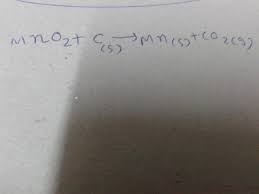 MnO2 + C(s) → Mn(s) + CO2(g)